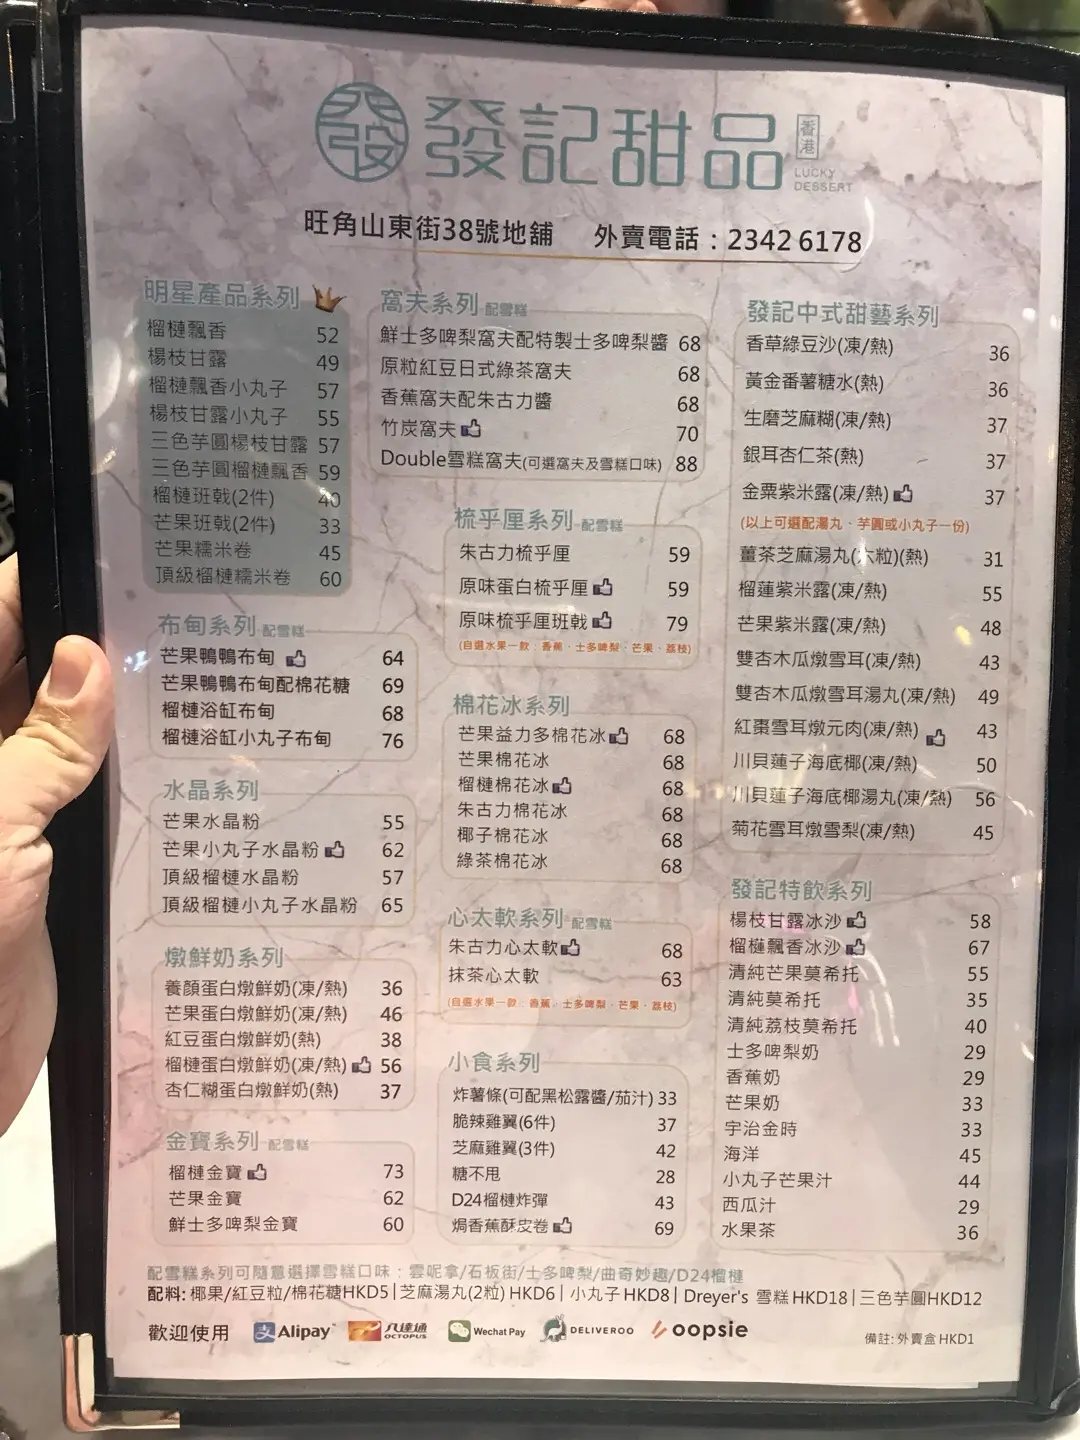 發 發記甜品 香港
LUCKY
DESSERT
旺角山東街38號地舖 外賣電話：2342 6178
明星產品系列
榴槤飄香 52
楊枝甘露 49
榴槤飄香小丸子 57
楊枝甘露小丸子 55
三色芋圓楊枝甘露 57
三色芋圓榴槤飄香 59
榴槤班戟(2件) 40
芒果班戟(2件) 33
芒果糯米卷 45
頂級榴槤糯米卷 60
布甸系列 配雪糕
芒果鴨鴨布甸 64
芒果鴨鴨布甸配棉花糖 69
榴槤浴缸布甸 68
榴槤浴缸小丸子布甸 76
水晶系列
芒果水晶粉 55
芒果小丸子水晶粉 62
頂級榴槤水晶粉 57
頂級榴槤小丸子水晶粉 65
燉鮮奶系列
養顏蛋白燉鮮奶(凍/熱) 36
芒果蛋白燉鮮奶(凍/熱) 46
紅豆蛋白燉鮮奶(熱) 38
榴槤蛋白燉鮮奶(凍/熱) 56
杏仁糊蛋白燉鮮奶(熱) 37
金寶系列 配雪糕
榴槤金寶 73
芒果金寶 62
鮮士多啤梨金寶 60
窩夫系列 配雪糕
鮮士多啤梨窩夫配特製士多啤梨醬 68
原粒紅豆日式綠茶窩夫 68
香蕉窩夫配朱古力醬 68
竹炭窩夫 70
Double雪糕窩夫(可選窩夫及雪糕口味) 88
梳乎厘系列 配雪糕
朱古力梳乎厘 59
原味蛋白梳乎厘 59
原味梳乎厘班戟 79
(自選水果一款：香蕉、士多啤梨、芒果、荔枝)
棉花冰系列
芒果益力多棉花冰 68
芒果棉花冰 68
榴槤棉花冰 68
朱古力棉花冰 68
椰子棉花冰 68
綠茶棉花冰 68
心太軟系列 配雪糕
朱古力心太軟 68
抹茶心太軟 63
(自選水果一款：香蕉、士多啤梨、芒果、荔枝)
小食系列
炸薯條(可配黑松露醬/茄汁) 33
脆辣雞翼(6件) 37
芝麻雞翼(3件) 42
糖不甩 28
D24榴槤炸彈 43
焗香蕉酥皮卷 69
發記中式甜藝系列
香草綠豆沙(凍/熱) 36
黃金番薯糖水(熱) 36
生磨芝麻糊(凍/熱) 37
銀耳杏仁茶(熱) 37
金粟紫米露(凍/熱) 37
(以上可選配湯丸、芋圓或小丸子一份)
薑茶芝麻湯丸(六粒)(熱) 31
榴蓮紫米露(凍/熱) 55
芒果紫米露(凍/熱) 48
雙杏木瓜燉雪耳(凍/熱) 43
雙杏木瓜燉雪耳湯丸(凍/熱) 49
紅棗雪耳燉元肉(凍/熱) 43
川貝蓮子海底椰(凍/熱) 50
川貝蓮子海底椰湯丸(凍/熱) 56
菊花雪耳燉雪梨(凍/熱) 45
發記特飲系列
楊枝甘露冰沙 58
榴槤飄香冰沙 67
清純芒果莫希托 55
清純莫希托 35
清純荔枝莫希托 40
士多啤梨奶 29
香蕉奶 29
芒果奶 33
宇治金時 33
海洋 45
小丸子芒果汁 44
西瓜汁 29
水果茶 36
配雪糕系列可隨意選擇雪糕口味：雲呢拿/石板街/士多啤梨/曲奇妙趣/D24榴槤
配料: 椰果/紅豆粒/棉花糖HKD5 | 芝麻湯丸(2粒) HKD6 | 小丸子 HKD8 | Dreyer's 雪糕 HKD18 | 三色芋圓HKD12
歡迎使用 支 Alipay 八達通 OCTOPUS WeChat Pay DELIVEROO oopsie 備註: 外賣盒 HKD1